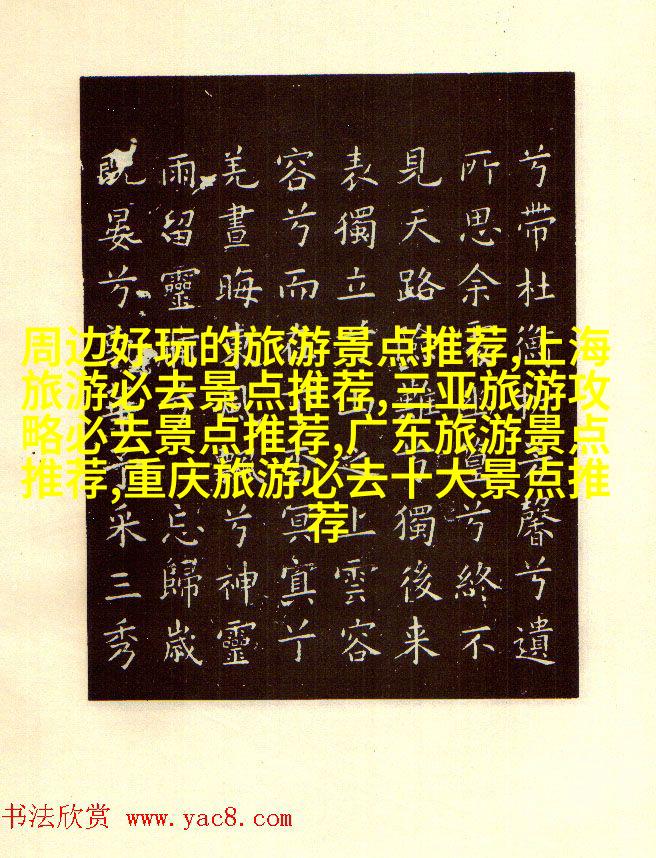 兮帶杜衡馨兮遺
所思余處篁兮終不
見天路險難兮獨後来
表獨立山之上雲容
容兮而冥冥兮
羌晝晦東風飄兮神靈
雨留靈忘歸歳
既晏兮予采三秀
周边好玩的旅游景点推荐,上海
旅游必去景点推荐,三亚旅游攻
略必去景点推荐,广东旅游景点
推荐,重庆旅游必去十大景点推
荐
书法欣赏 www.yac8.com